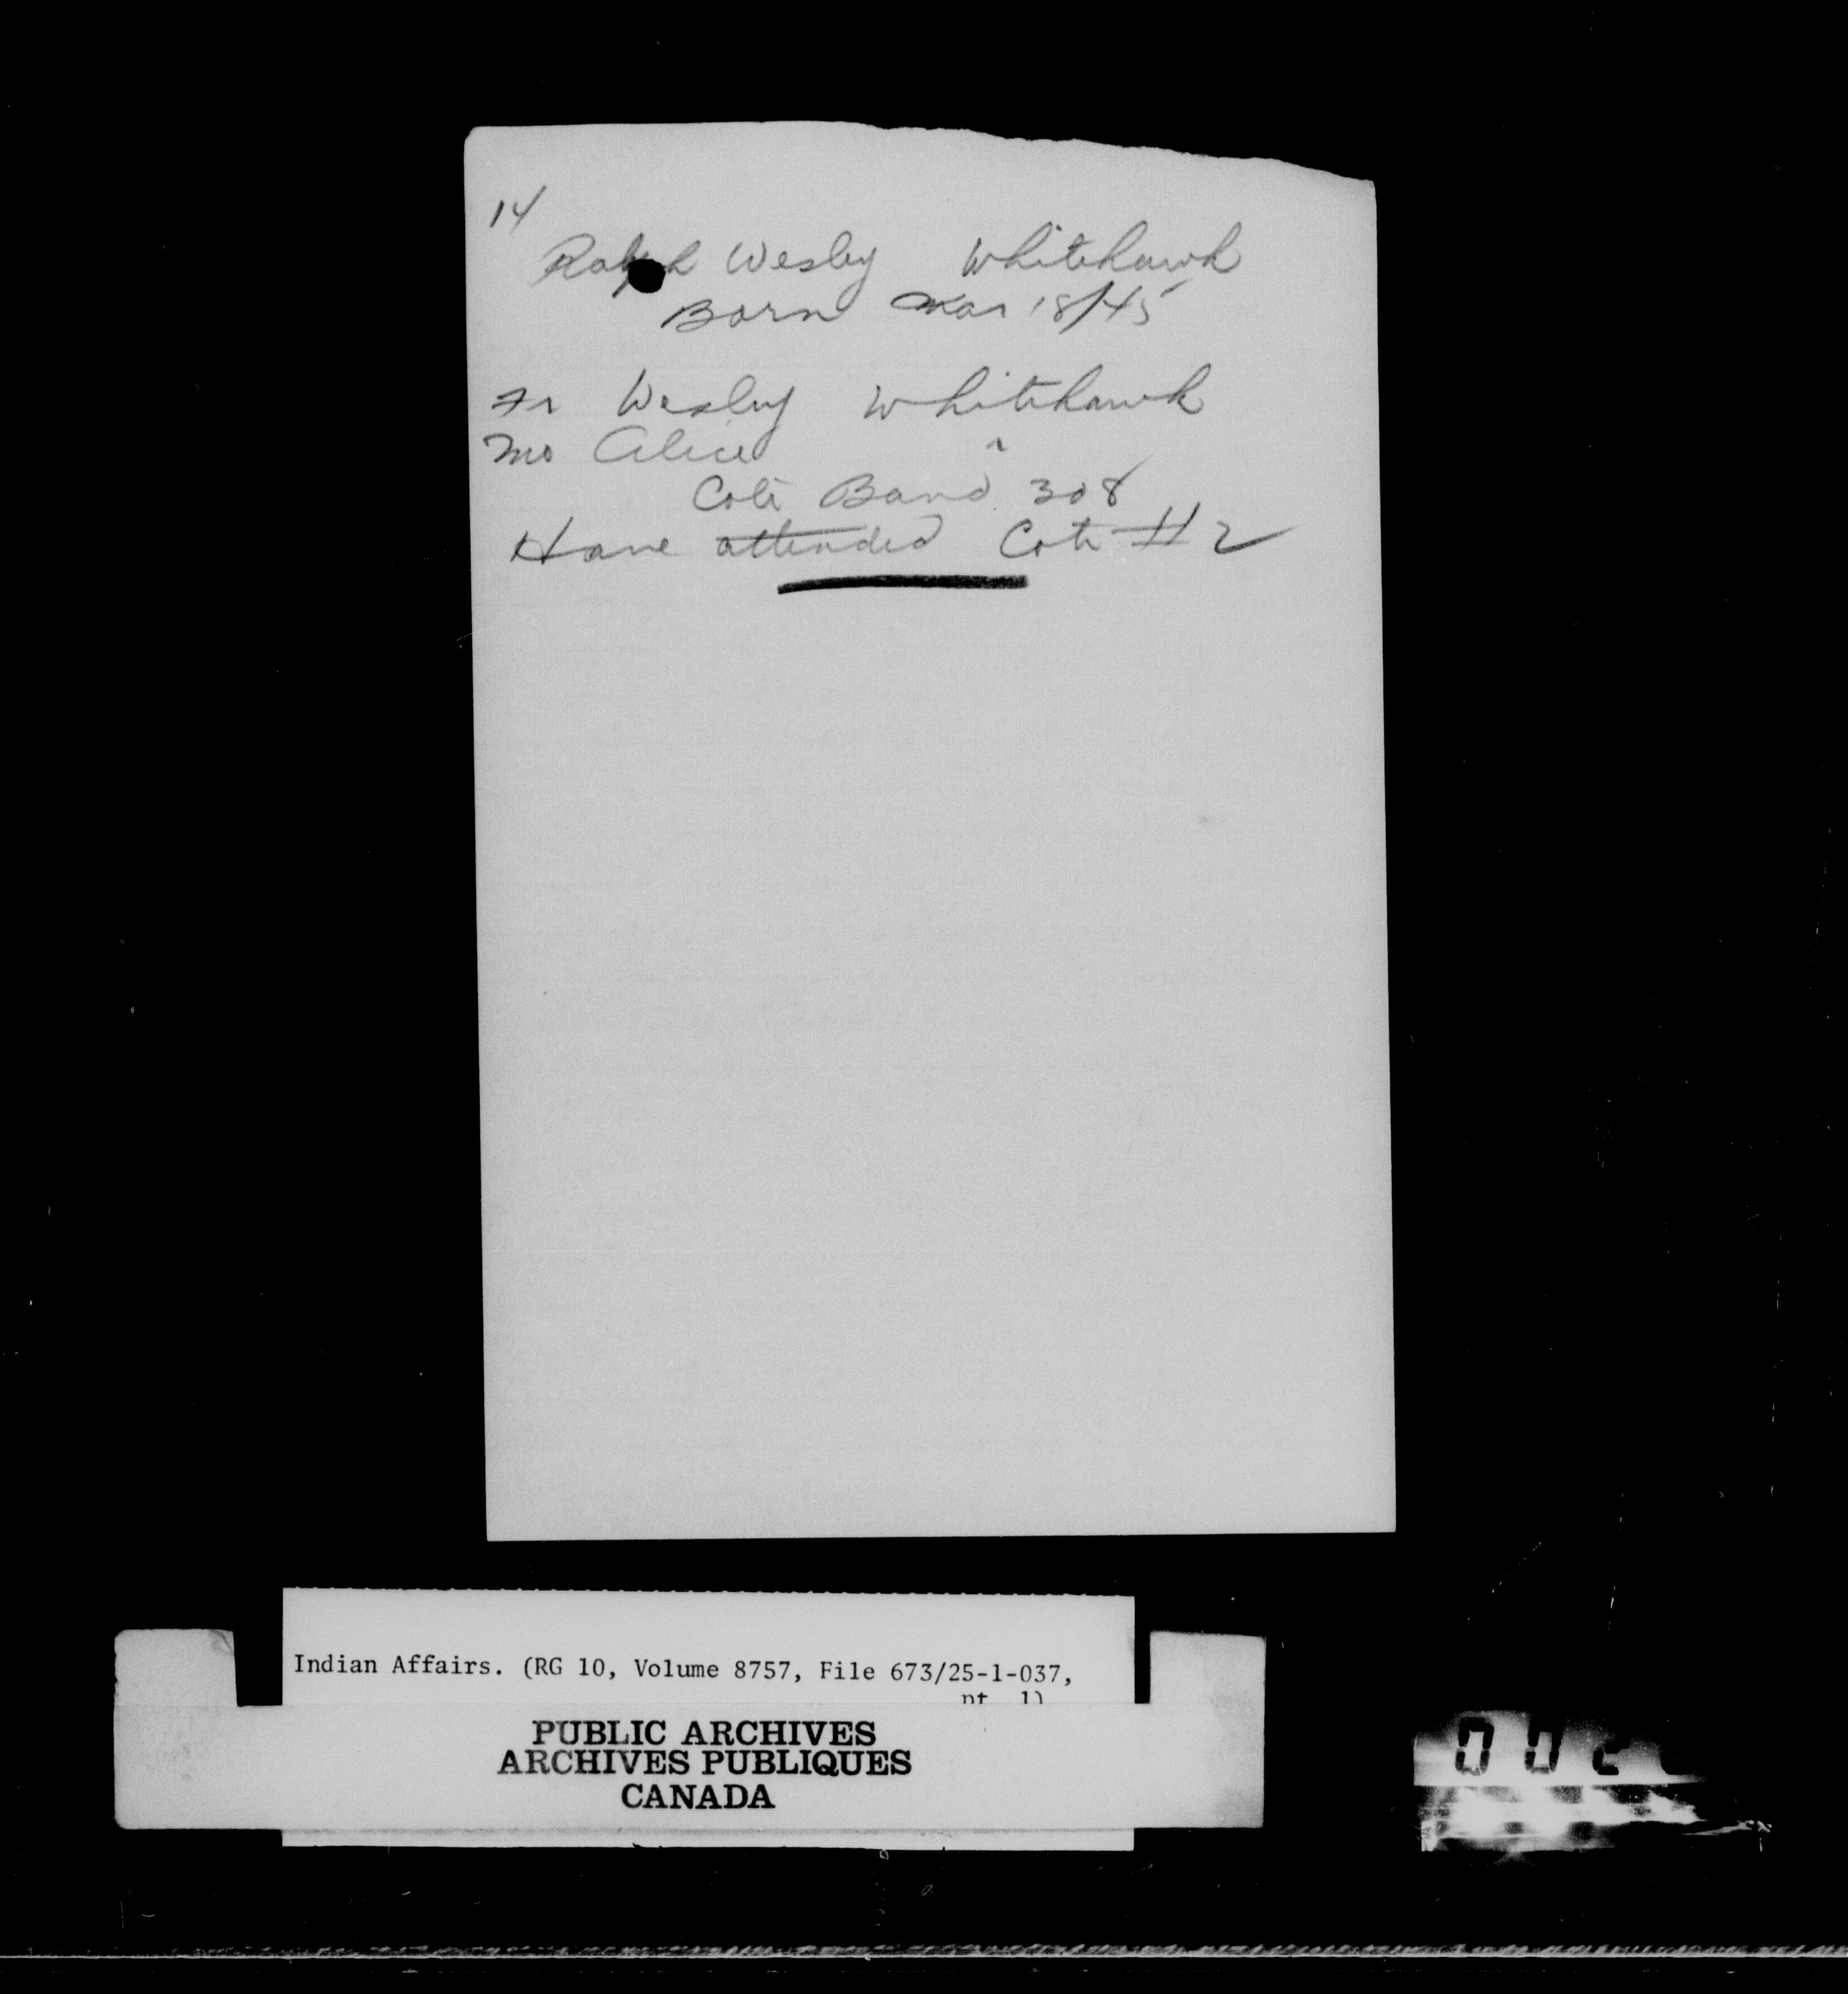 14
Ralph Wesley Whitehawk
Born Mar 18/45
Fr Wesley Whitehawk
Mo Alice "
Cote Band 308
Have attended Cote #2
Indian Affairs. (RG 10, Volume 8757, File 673/25-1-037,
pt. 1)
PUBLIC ARCHIVES
ARCHIVES PUBLIQUES
CANADA